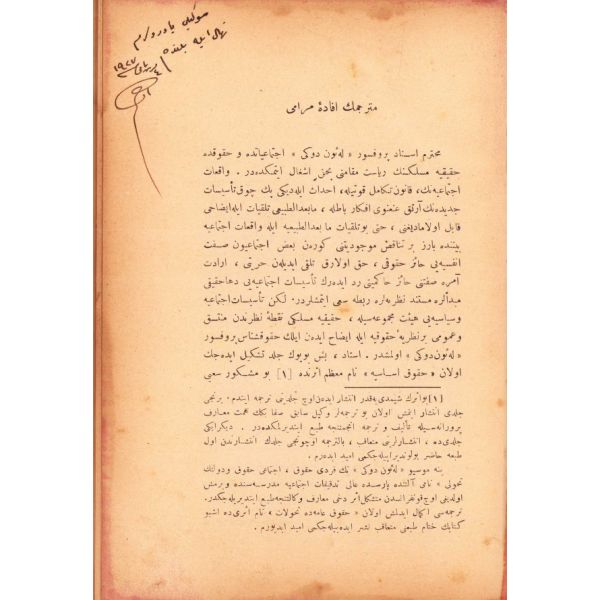 مترجمك افادهٔ مرامى
محترم استاد پروفسور « له ئون دوكى » اجتماعياتده و حقوقده
حقيقيه مسلكنك رياست مقامنى بحق اشغال ايتمكده در . واقعات
اجتماعيه نك، قانون تكامل قوتيله، احداث ايله ديكى پك چوق تأسيسات
جديده نك آرتق عنعنوى افكار باطله ، مابعدالطبيعى تلقيات ايله ايضاحى
قابل اولاماديغنى ، حتى بو تلقيات مابعدالطبيعيه ايله واقعات اجتماعيه
بيننده بارز بر تناقض موجوديتنى كوره ن بعض اجتماعيون صفت
انفسيه يى حائز حقوقى ، حق اولارق تلقى ايديله ن حريتى ، ارادت
آمره صفتنى حائز حاكميتى رد ايده رك تأسيسات اجتماعيه يى دها حقيقى
مبدألره مستند نظريه لره ربطه سعى ايتمشلردر. لكن تأسيسات اجتماعيه
و سياسيه يى هيئت مجموعه سيله ، حقيقيه مسلكى نقطهٔ نظرندن منسق
و عمومى بر نظريهٔ حقوقيه ايله ايضاح ايده ن ايلك حقوقشناس پروفسور
« له ئون دوكى » اولمشدر . استاد ، بش بويوك جلد تشكيل ايده جك
اولان « حقوق اساسيه » نام معظم اثرنده [١] بو مشكور سعى
[١] بو اثرك شيمدى يه قدر انتشار ايده ن اوچ جلدينى ترجمه ايتدم . برنجى
جلدى انتشار ايتمش اولان بو ترجمه لر وكيل سابق صفا بكك همت معارف
پرورانه سيله تأليف و ترجمه انجمننجه طبع ايتديرلمكده در . ديكر ايكى
جلدى ده ، انتشارلرينى متعاقب ، بالترجمه اوچونجى جلدك انتشارندن اول
طبعه حاضر بولوندیره بيله جكمى اميد ايده رم .
ينه موسيو « له ئون دوكى » نك فردى حقوق ، اجتماعى حقوق و دولتك
تحولى » نامى آلتنده پارسده عالى تدقيقات اجتماعيه مدرسه سنده ويرمش
اولديغى اوچ قونفرانسدن متشكل اثر دخى معارف وكالتنجه طبع ايتديريله جكدر.
ترجمه سى اكمال ايدلمش اولان « حقوق عامه ده تحولات » نام اثرى ده اشبو
كتابك ختام طبعنى متعاقب نشر ايده بيله جكمى اميد ايدييورم .